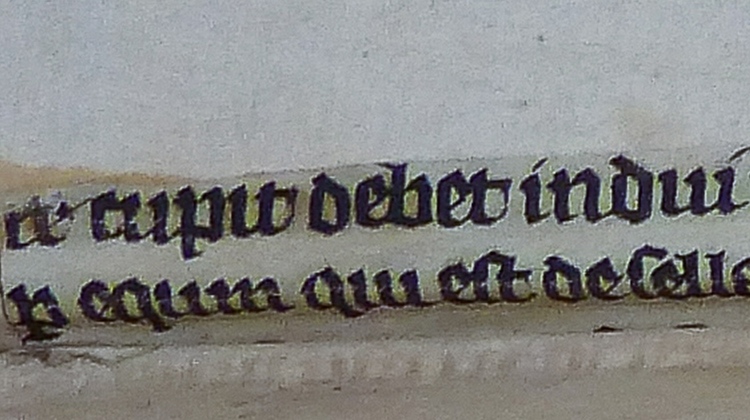 te cupit debet indui
p equm qui est de selle